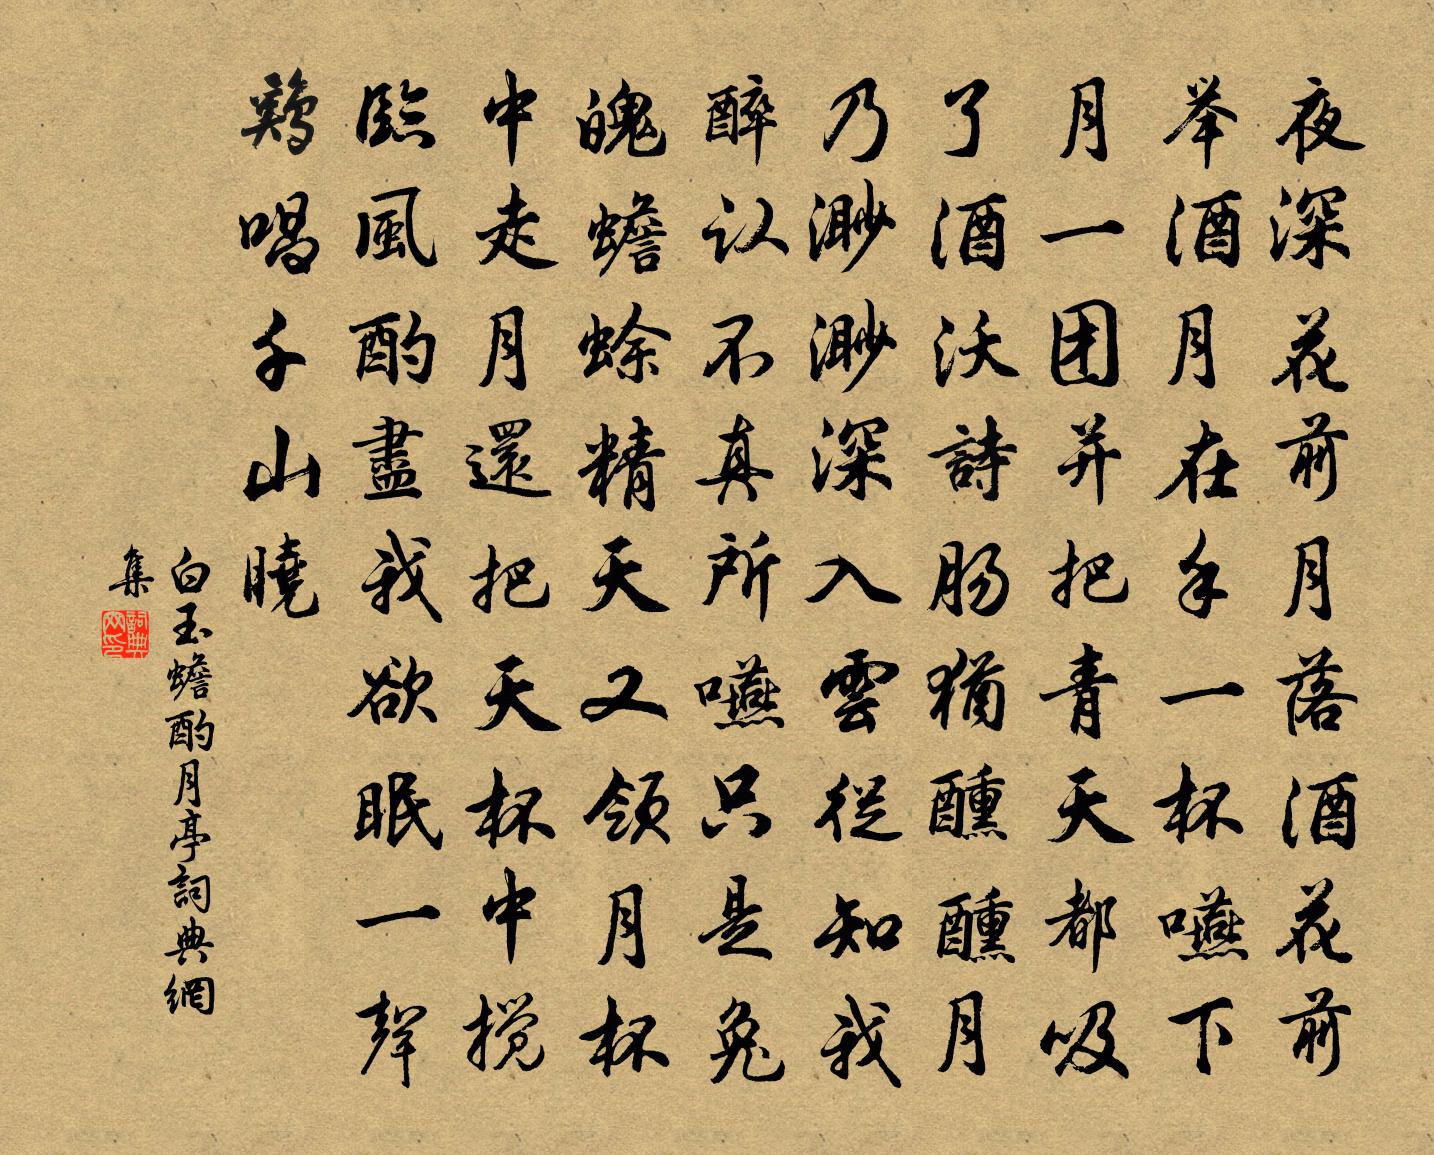 夜深花前月落酒花前
举酒月在手一杯嚥下
月一团并把青天都吸
了酒沃詩肠猶醺醺月
乃渺渺深入雲從知我
醉认不真所嚥只是兔
魄蟾蜍精天又領月杯
中走月還把天杯中搅
臨風酌盡我欲眠一聲
鷄唱千山曉
白玉蟾酌月亭詞典網
集
詞典
网印